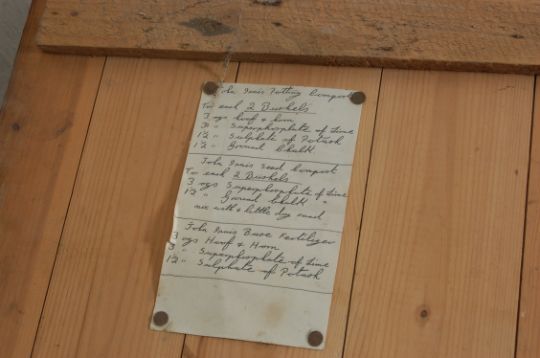 John Innis Potting Compost
To each 2 Bushels
3 ozs hoof & horn
3 " Superphosphate of Lime
1½ " Sulphate of Potash
1½ " Ground Chalk
John Innis Seed Compost
To each 2 Bushels
3 ozs Superphosphate of Lime
1½ " Ground Chalk "
mix with a little dry sand
John Innis Base Fertilizer
3 ozs Hoof & Horn
3 " Superphosphate of Lime
1½ " Sulphate of Potash